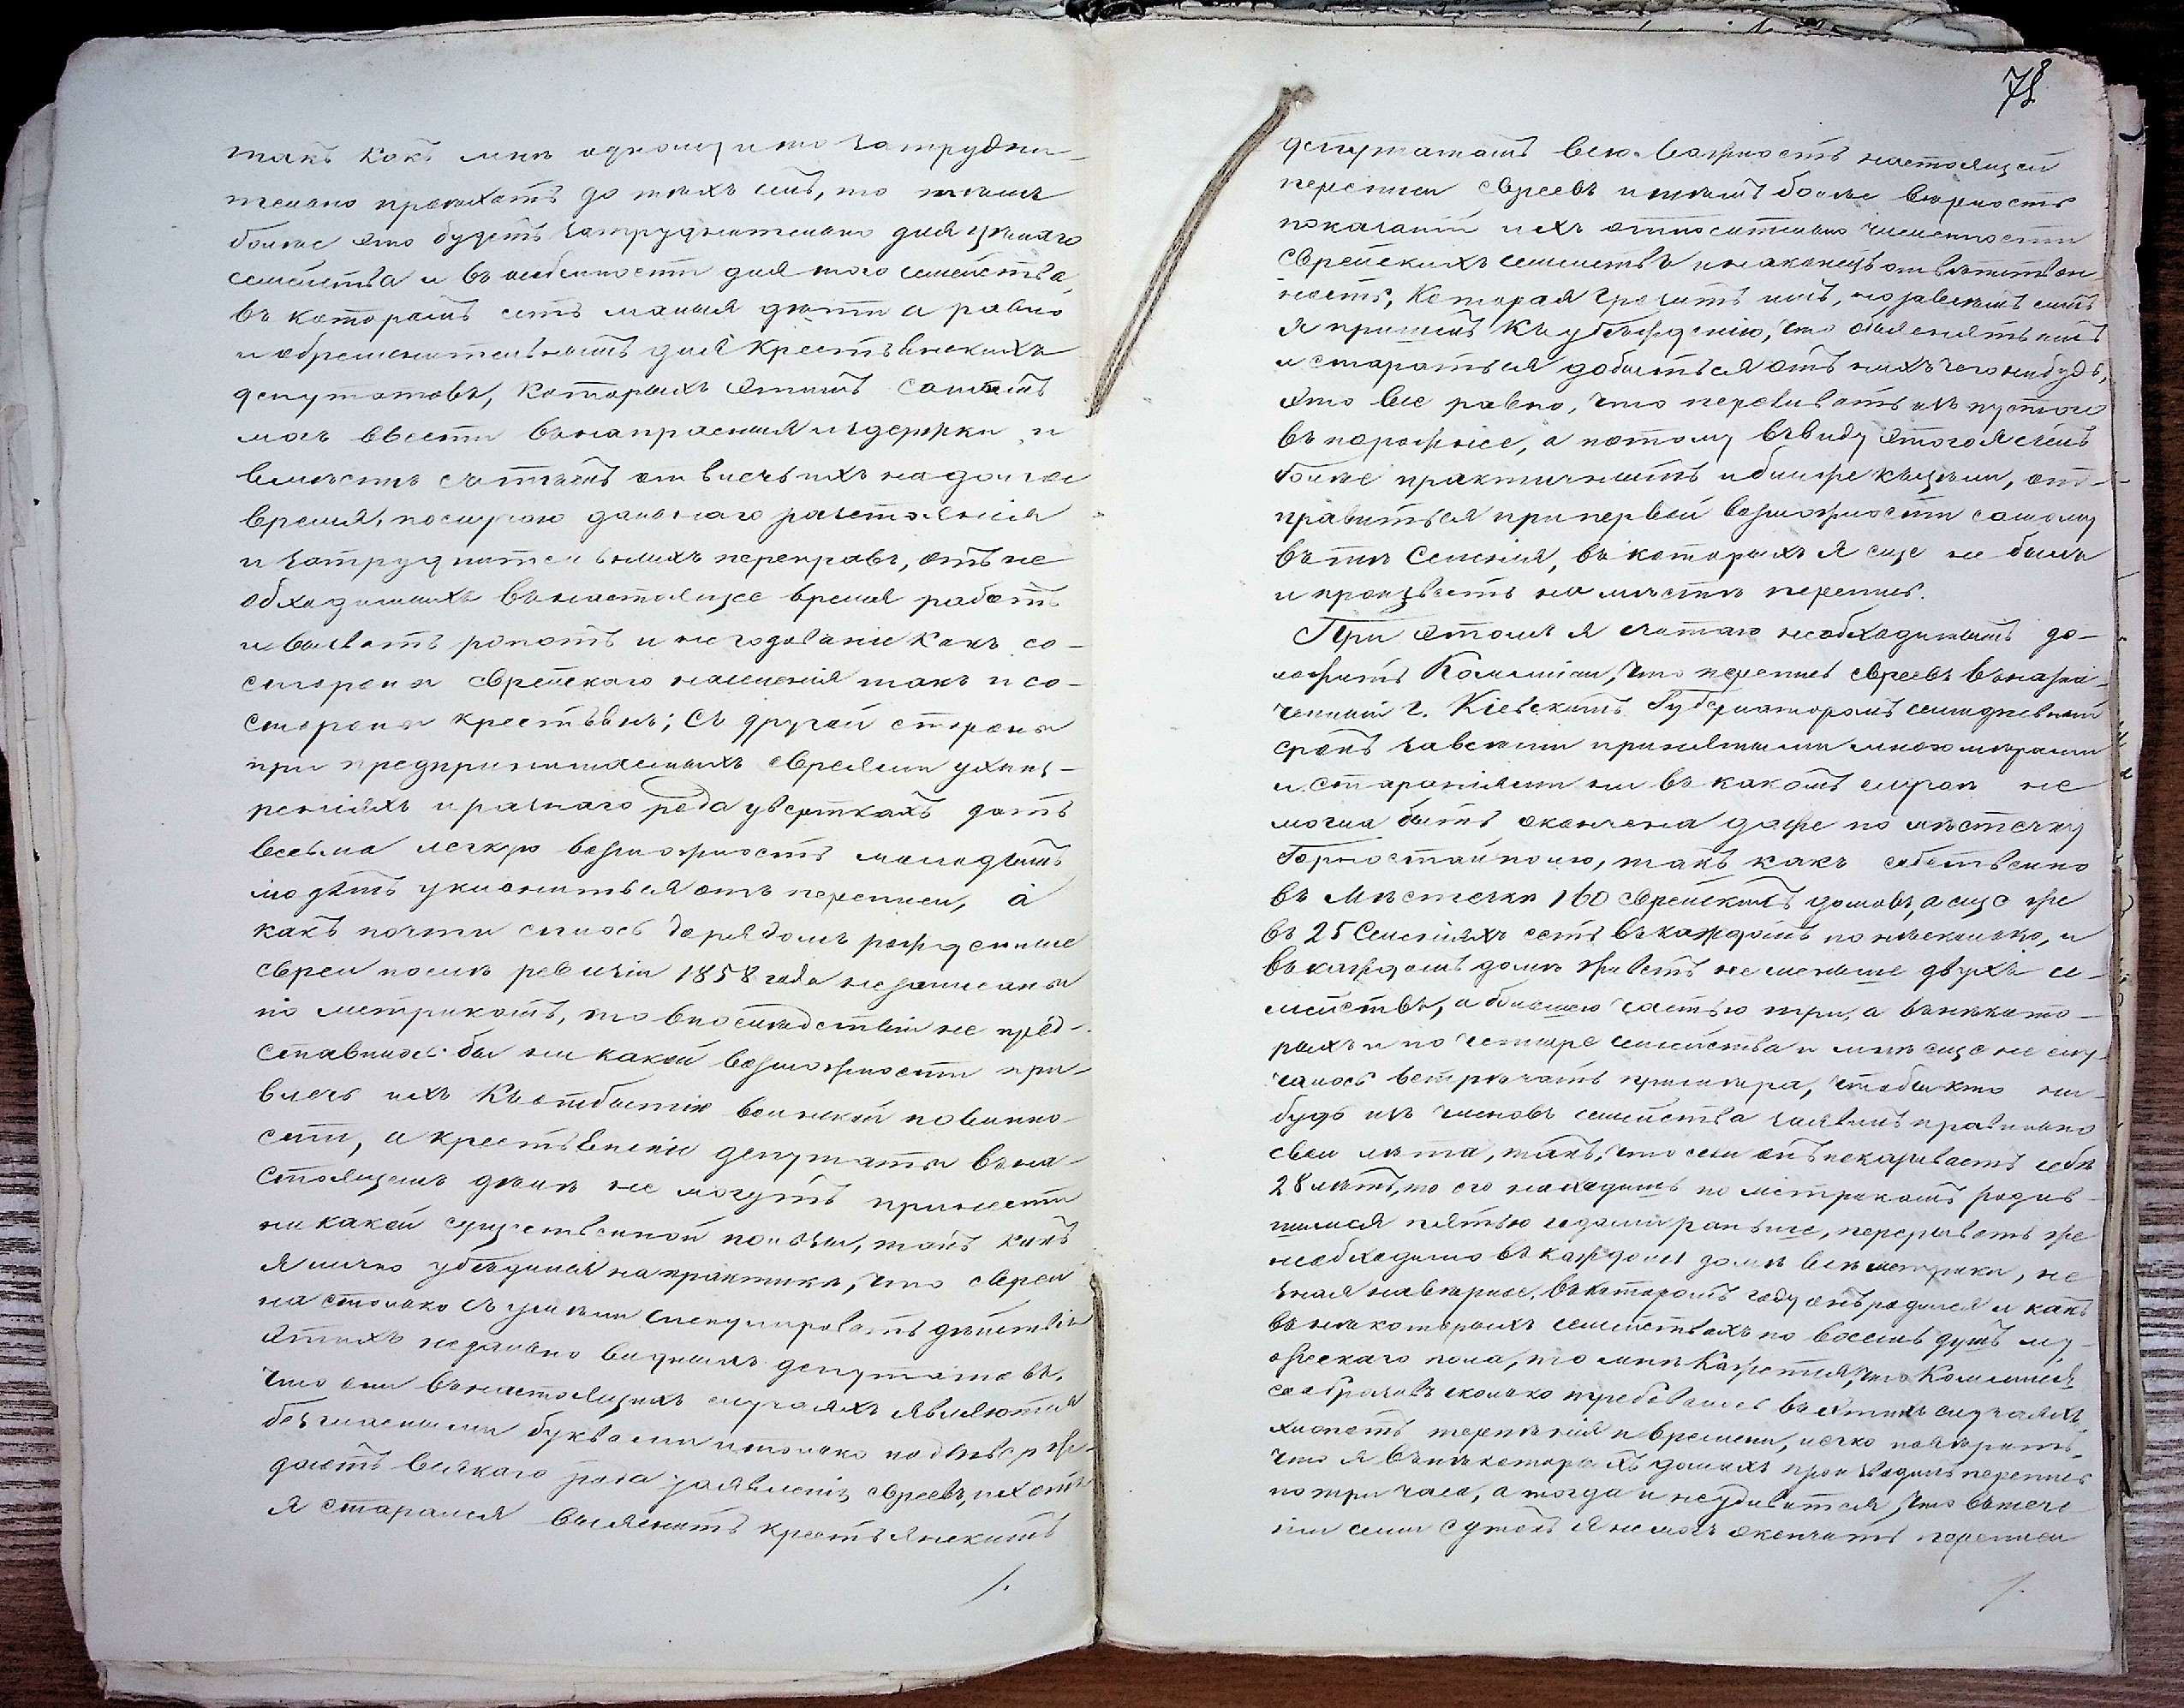 такъ какъ мнѣ одному и то затрудни-
тельно проѣхать до тѣхъ селъ, то тѣмъ
болѣе это будетъ затруднительно для цѣлаго
семейства и въ особенности для того семейства,
въ которомъ есть малыя дѣти а равно
и обременительнымъ для Крестьянскихъ
депутатовъ, которыхъ этимъ самымъ
могъ ввести въ напрасныя издержки и
вмѣстѣ съ тѣмъ отвлечь ихъ на долгое
время, по случаю дальняго разстоянія
и затруднительныхъ переправъ, отъ не
обходимыхъ въ настоящее время работъ
и вызвать ропотъ и негодованіе какъ со-
стороны еврейскаго населенія такъ и со-
стороны крестьянъ; Съ другой стороны
при предпринимаемыхъ евреями ухищ-
реніяхъ и разнаго рода уверткахъ дать
весьма легкую возможность молодымъ
людямъ уклониться отъ переписи, а
какъ почти сплошь да рядомъ рожденные
евреи послѣ ревизіи 1858 года не записаны
по метрикамъ, то впослѣдствіи не пред-
ставилось бы ни какой возможности при-
влечь ихъ къ отбытію воинской повинно-
сти, а крестьянскіе депутаты въ на-
стоящемъ дѣлѣ не могутъ принести
ни какой существенной пользы, такъ какъ
я лично убѣдился на практикѣ, что евреи
на столько съумѣли эксплуатировать дѣйствія
этихъ недавно видныхъ депутатовъ,
что они въ настоящихъ случаяхъ являются
безгласными буквами и только подтвержда-
даютъ всякаго рода заявленія евреевъ, и хотя
я старался выяснить крестьянскимъ
/.
78
депутатамъ всю важность настоящей
переписи евреевъ и тѣмъ болѣе вѣрность
показаній ихъ относительно численности
еврейскихъ семействъ и наконецъ отвѣтствен
ность, которая грозитъ имъ, но за всѣмъ симъ
я пришелъ къ убѣжденію, что объяснять имъ
и стараться добиться отъ нихъ чего нибудь,
это все равно, что переливать изъ пустого
въ порожнее, а потому въ виду этого я счелъ
болѣе практичнымъ и ближе къ цѣли, от-
правиться при первой возможности самому
въ тѣ селенія, въ которыхъ я еще не былъ
и произвесть на мѣстѣ перепись.
При этомъ я считаю необходимымъ до-
ложить Коммисіи, что перепись евреевъ въ назна-
ченный г. Кіевскимъ Губернаторомъ семидневный
срокъ за всѣми принятыми мною мѣрами
и стараніями ни въ какомъ случаѣ не
могла быть окончена даже по мѣстечку
Горностайполю, такъ какъ собственно
въ мѣстечкѣ 160 еврейскихъ домовъ, а еще же
въ 25 селеніяхъ есть въ каждомъ по нѣсколько, и
въ каждомъ домѣ живетъ не меньше двухъ се-
мействъ, а большею частью три, а въ нѣкото-
рыхъ и по четыре семейства и мнѣ еще не слу-
чалось встрѣчать примѣра, чтобы кто ни-
будь изъ членовъ семейства заявилъ правильно
свои лѣта, такъ, что если онъ показываетъ себѣ
28 лѣтъ, то его находишь по метрикамъ родив-
шимся пятью годами раньше, перерывать же
необходимо въ каждомъ домѣ всѣ метрики, не
зная навѣрное, въ которомъ году онъ родился и какъ
въ нѣкоторыхъ семействахъ по восемь душъ му-
жескаго пола, то мнѣ кажется, что Коммисія
сообразивъ сколько требовалось въ этихъ случаяхъ
хлопотъ терпѣнія и времени, легко повѣритъ,
что я въ нѣкоторыхъ домахъ производилъ перепись
по три часа, а тогда и неудивится, что въ тече-
ніи семи сутокъ я не могъ окончить переписи
/.